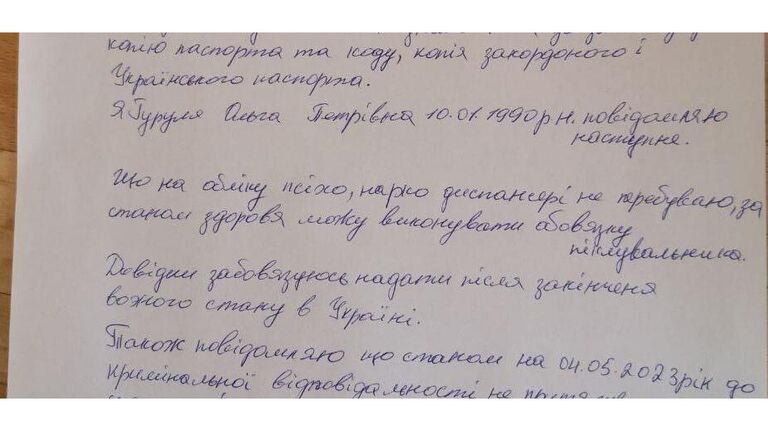 копію паспорта та коду, копія закордоного і
Українського паспорта.
Я Гуруля Ольга Петрівна 10.01.1990р н. повідомляю
наступне.
Що на обліку псіхо, нарко диспансері не перебуваю, за
станом здоровя можу виконувати обовязку
піклувальника.
Довідки забовязуюсь надати після закінченя
вожного стану в Україні.
Також повідомляю що станом на 04.05.2023рік до
кримінальної відповідальності не